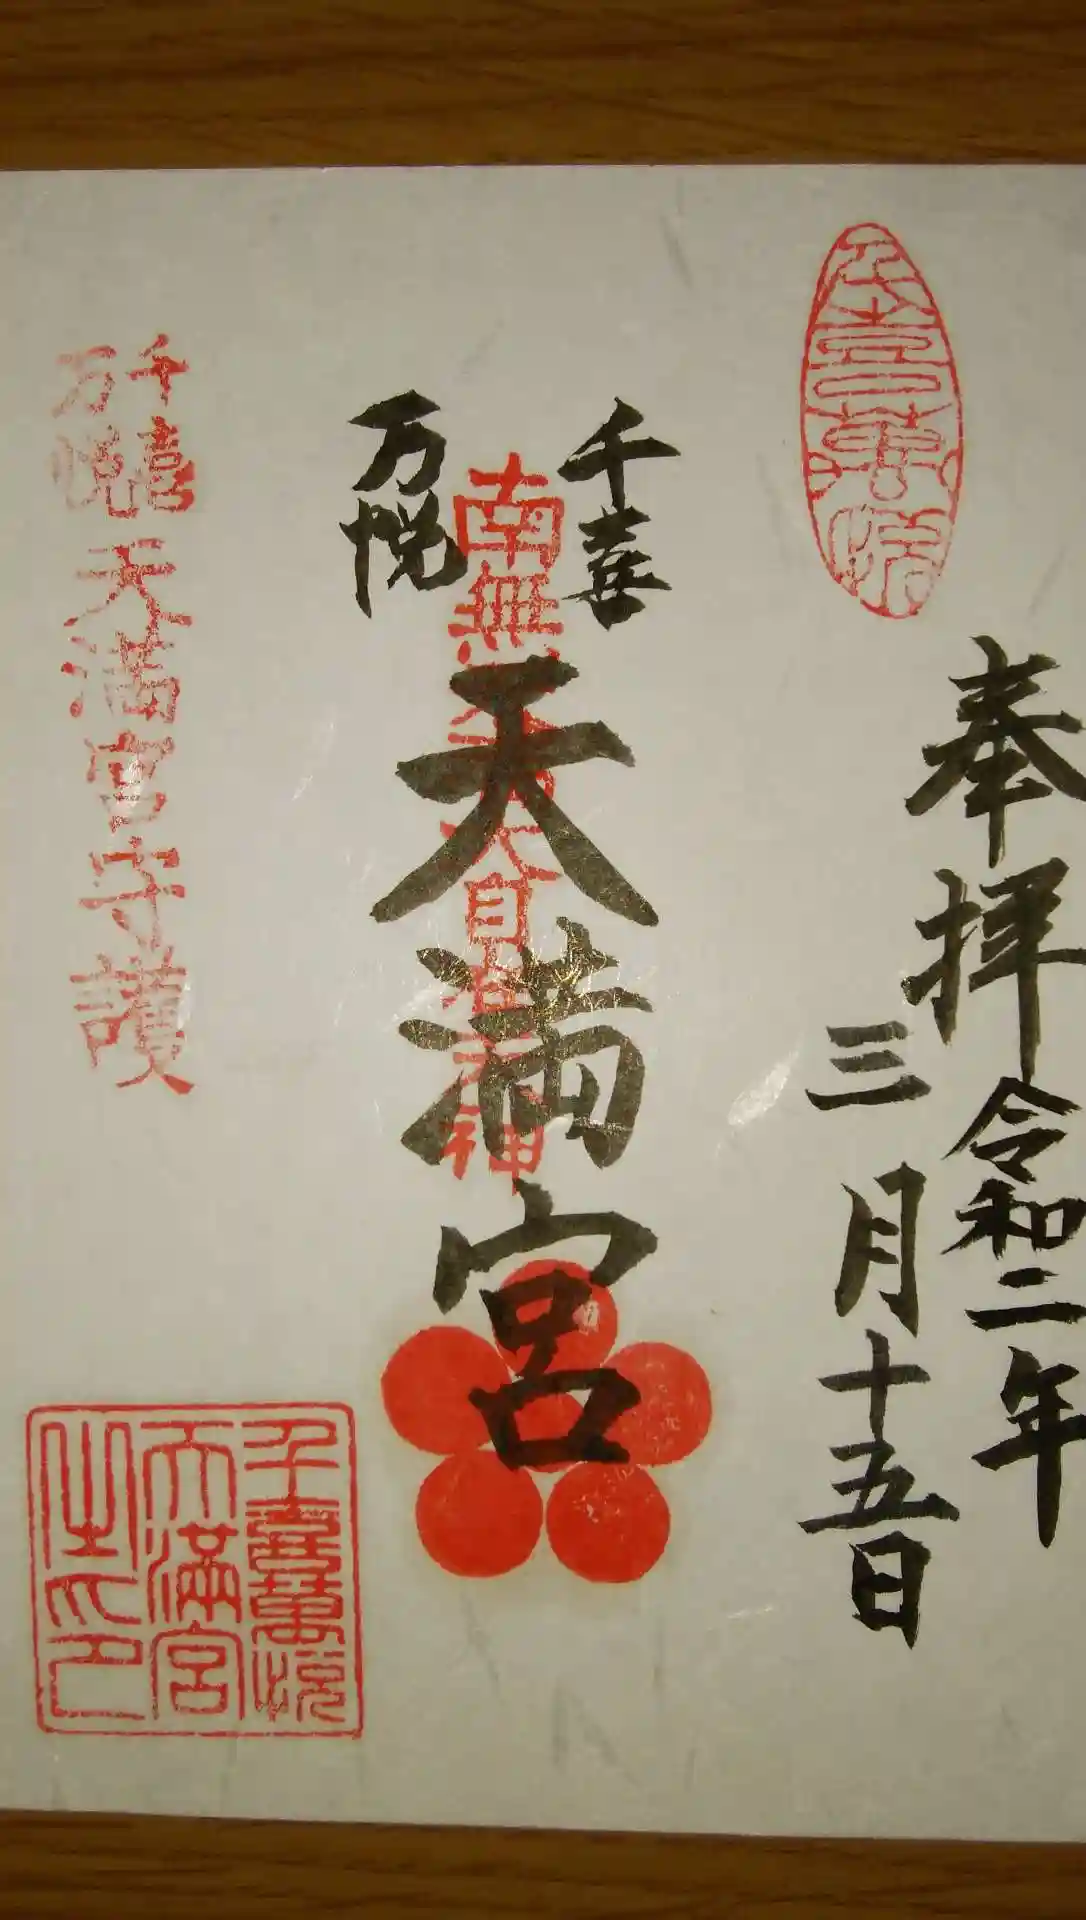 千喜万悦
奉拝
令和二年
三月十五日
千喜
万悦
天満宮
南無天満大自在天神
千喜
万悦
天満宮守護
千喜萬悦
天満宮
之印